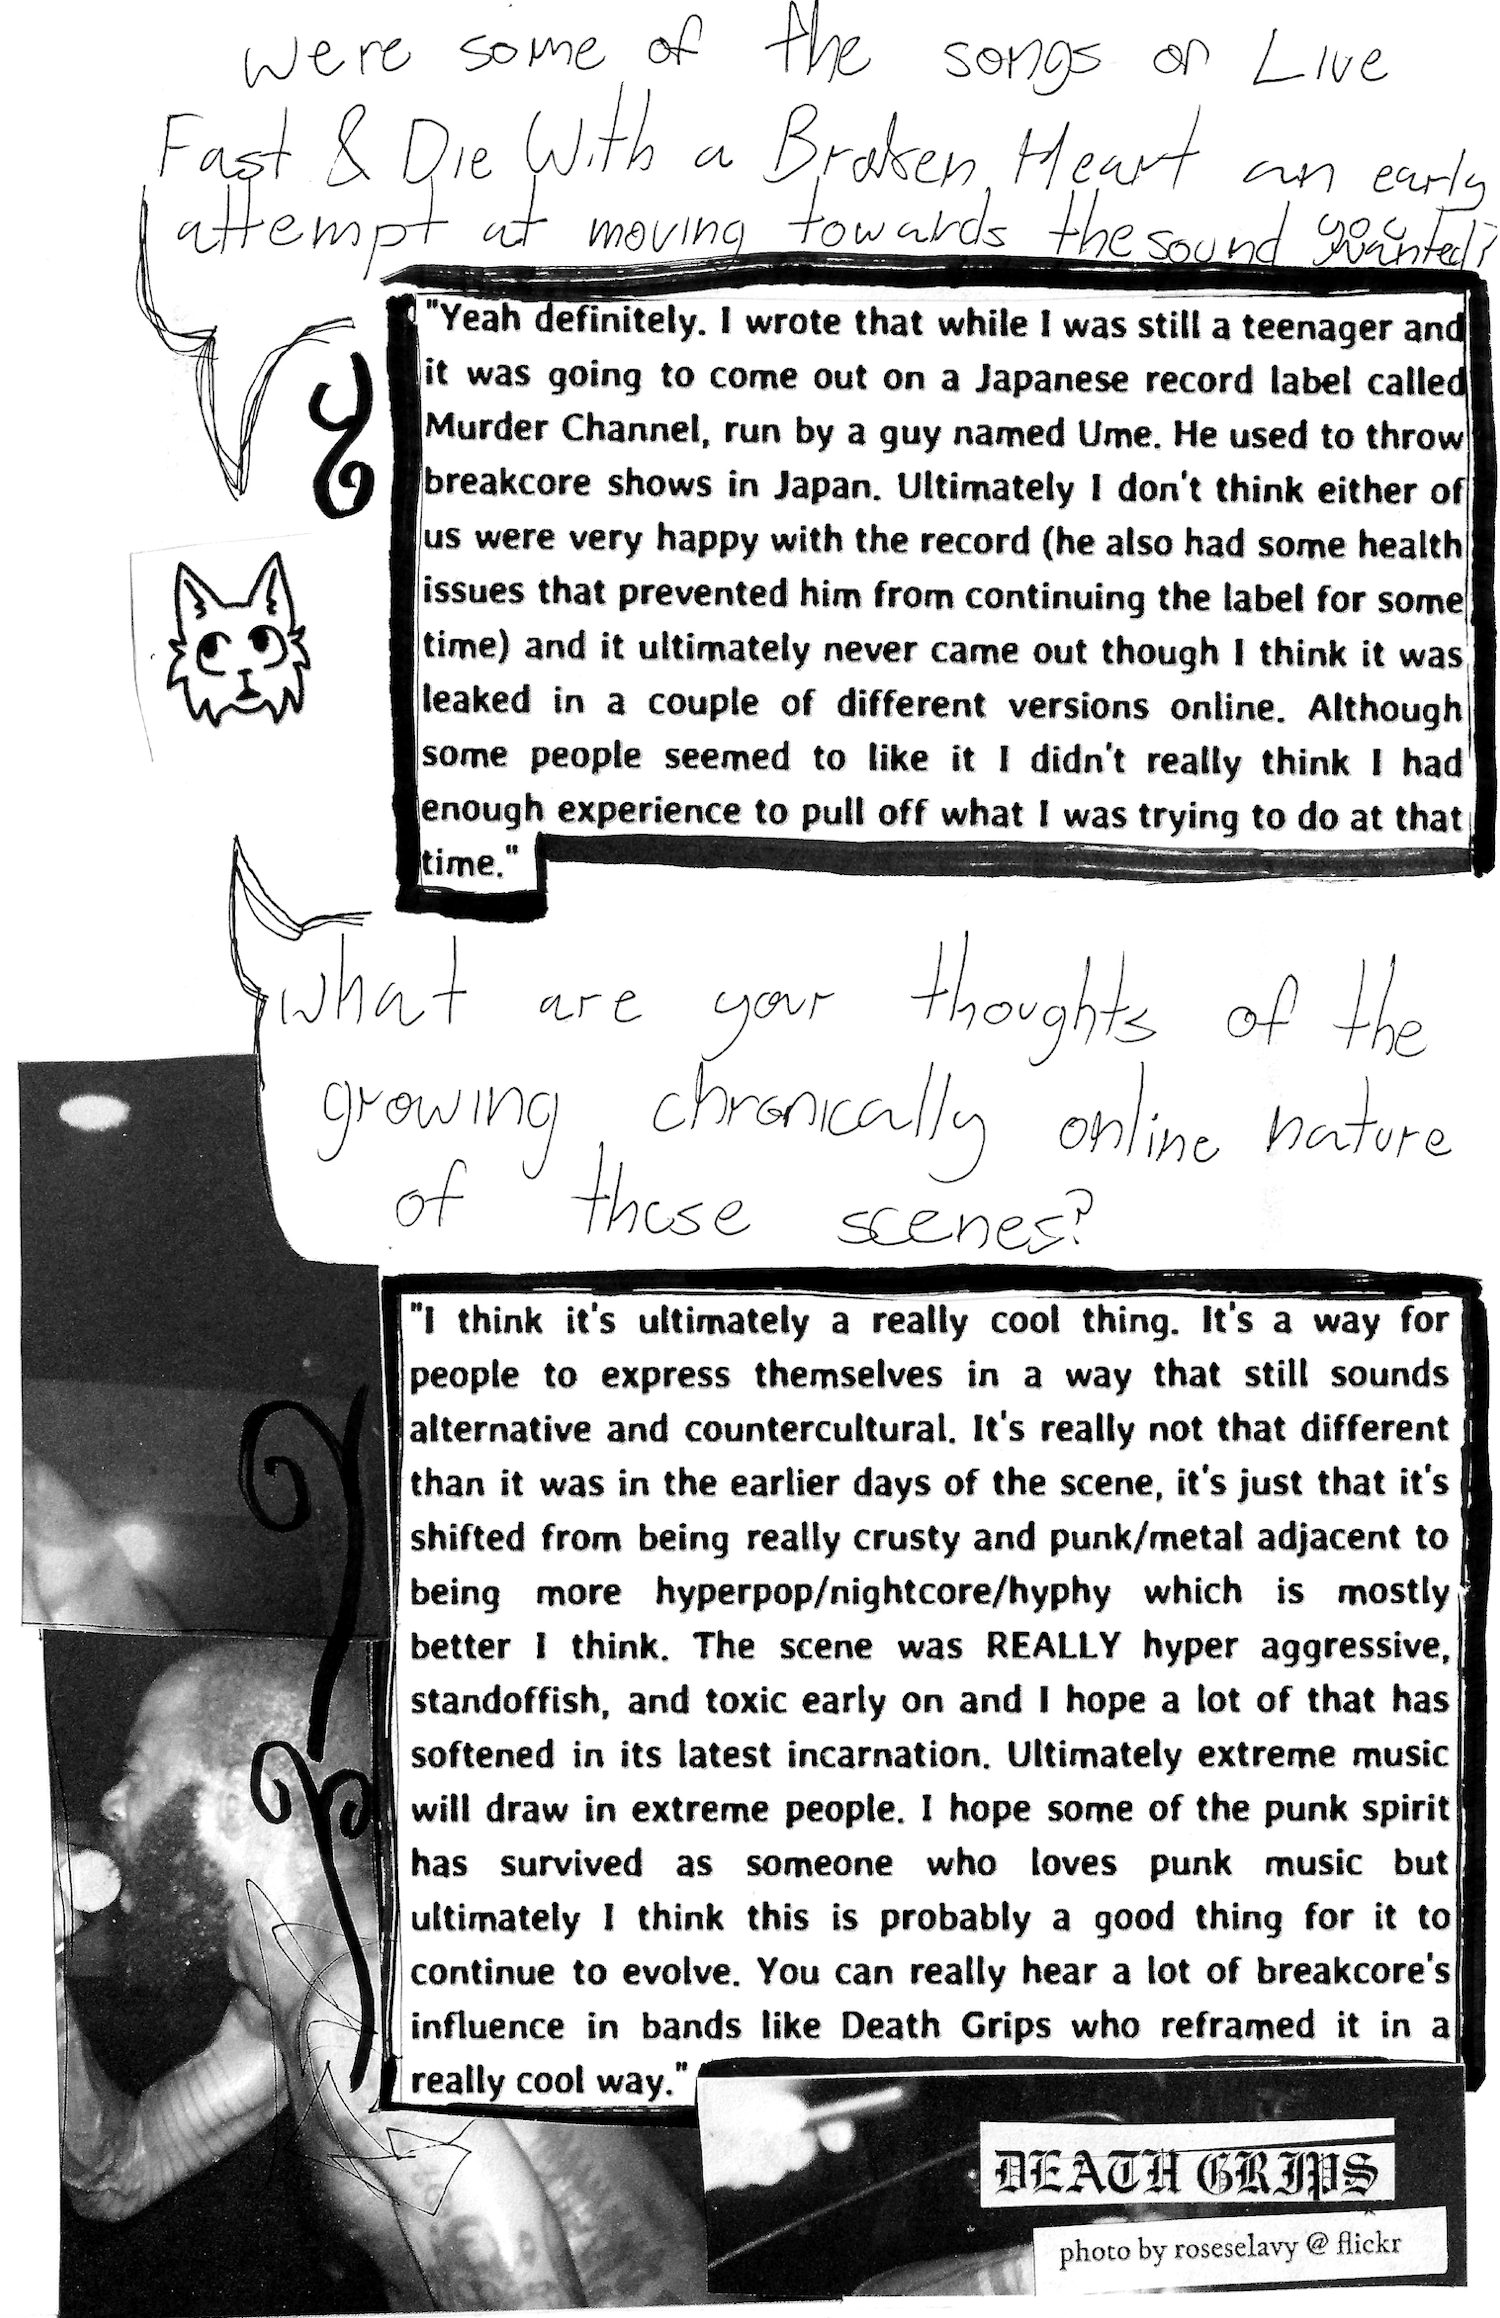 were some of the songs on Live
Fast & Die With a Broken Heart an early
attempt at moving towards the sound you wanted?
"Yeah definitely. I wrote that while I was still a teenager and
it was going to come out on a Japanese record label called
Murder Channel, run by a guy named Ume. He used to throw
breakcore shows in Japan. Ultimately I don't think either of
us were very happy with the record (he also had some health
issues that prevented him from continuing the label for some
time) and it ultimately never came out though I think it was
leaked in a couple of different versions online. Although
some people seemed to like it I didn't really think I had
enough experience to pull off what I was trying to do at that
time."
what are your thoughts of the
growing chronically online nature
of these scenes?
"I think it's ultimately a really cool thing. It's a way for
people to express themselves in a way that still sounds
alternative and countercultural. It's really not that different
than it was in the earlier days of the scene, it's just that it's
shifted from being really crusty and punk/metal adjacent to
being more hyperpop/nightcore/hyphy which is mostly
better I think. The scene was REALLY hyper aggressive,
standoffish, and toxic early on and I hope a lot of that has
softened in its latest incarnation. Ultimately extreme music
will draw in extreme people. I hope some of the punk spirit
has survived as someone who loves punk music but
ultimately I think this is probably a good thing for it to
continue to evolve. You can really hear a lot of breakcore's
influence in bands like Death Grips who reframed it in a
really cool way."
DEATH GRIPS
photo by roseselavy @ flickr